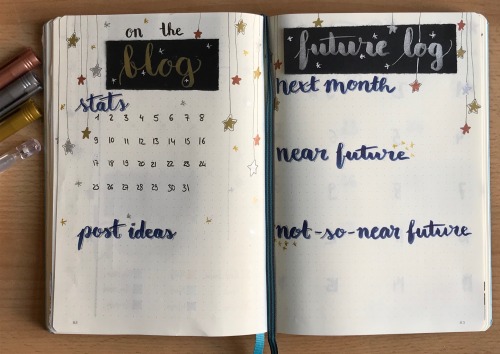 on the
blog
stats
1 2 3 4 5 6 7 8
9 10 11 12 13 14 15 16
17 18 19 20 21 22 23 24
25 26 27 28 29 30 31
post ideas
future log
next month
near future
not-so-near future